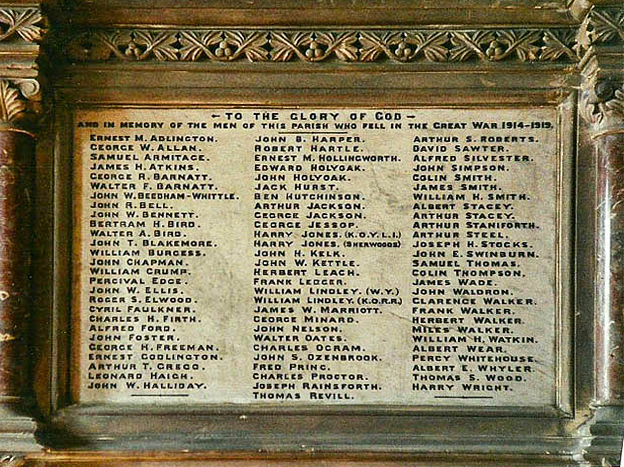 TO THE GLORY OF GOD
AND IN MEMORY OF THE MEN OF THIS PARISH WHO FELL IN THE GREAT WAR 1914-1919.
ERNEST M. ADLINGTON.
GEORGE W. ALLAN.
SAMUEL ARMITAGE.
JAMES H. ATKINS.
GEORGE R. BARNATT.
WALTER F. BARNATT.
JOHN W. BEEDHAM-WHITTLE.
JOHN R. BELL.
JOHN W. BENNETT.
BERTRAM H. BIRD.
WALTER A. BIRD.
JOHN T. BLAKEMORE.
WILLIAM BURGESS.
JOHN CHAPMAN.
WILLIAM CRUMP.
PERCIVAL EDGE.
JOHN W. ELLIS.
ROGER S. ELWOOD.
CYRIL FAULKNER.
CHARLES H. FIRTH.
ALFRED FORD.
JOHN FOSTER.
GEORGE H. FREEMAN.
ERNEST GODLINGTON.
ARTHUR T. GREGG.
LEONARD HAIGH.
JOHN W. HALLIDAY.
JOHN B. HARPER.
ROBERT HARTLE.
ERNEST M. HOLLINGWORTH.
EDWARD HOLYOAK.
JOHN HOLYOAK.
JACK HURST.
BEN HUTCHINSON.
ARTHUR JACKSON.
GEORGE JACKSON.
GEORGE JESSOP.
HARRY JONES. (K.O.Y.L.I.)
HARRY JONES. (SHERWOODS)
JOHN H. KELK.
JOHN W. KETTLE.
HERBERT LEACH.
FRANK LEDGER.
WILLIAM LINDLEY. (W.Y.)
WILLIAM LINDLEY. (K.O.R.R.)
JAMES W. MARRIOTT.
GEORGE MINARD.
JOHN NELSON.
WALTER OATES.
CHARLES OGRAM.
JOHN S. OZENBROOK.
FRED PRING.
CHARLES PROCTOR.
JOSEPH RAINSFORTH.
THOMAS REVILL.
ARTHUR S. ROBERTS.
DAVID SAWTER.
ALFRED SILVESTER.
JOHN SIMPSON.
COLIN SMITH.
JAMES SMITH.
WILLIAM H. SMITH.
ALBERT STACEY.
ARTHUR STACEY.
ARTHUR STANIFORTH.
ARTHUR STEEL.
JOSEPH H. STOCKS.
JOHN E. SWINBURN.
SAMUEL THOMAS.
COLIN THOMPSON.
JAMES WADE.
JOHN WALDRON.
CLARENCE WALKER.
FRANK WALKER.
HERBERT WALKER.
MILES WALKER.
WILLIAM H. WATKIN.
ALBERT WEAR.
PERCY WHITEHOUSE.
ALBERT E. WHYLER.
THOMAS S. WOOD.
HARRY WRIGHT.